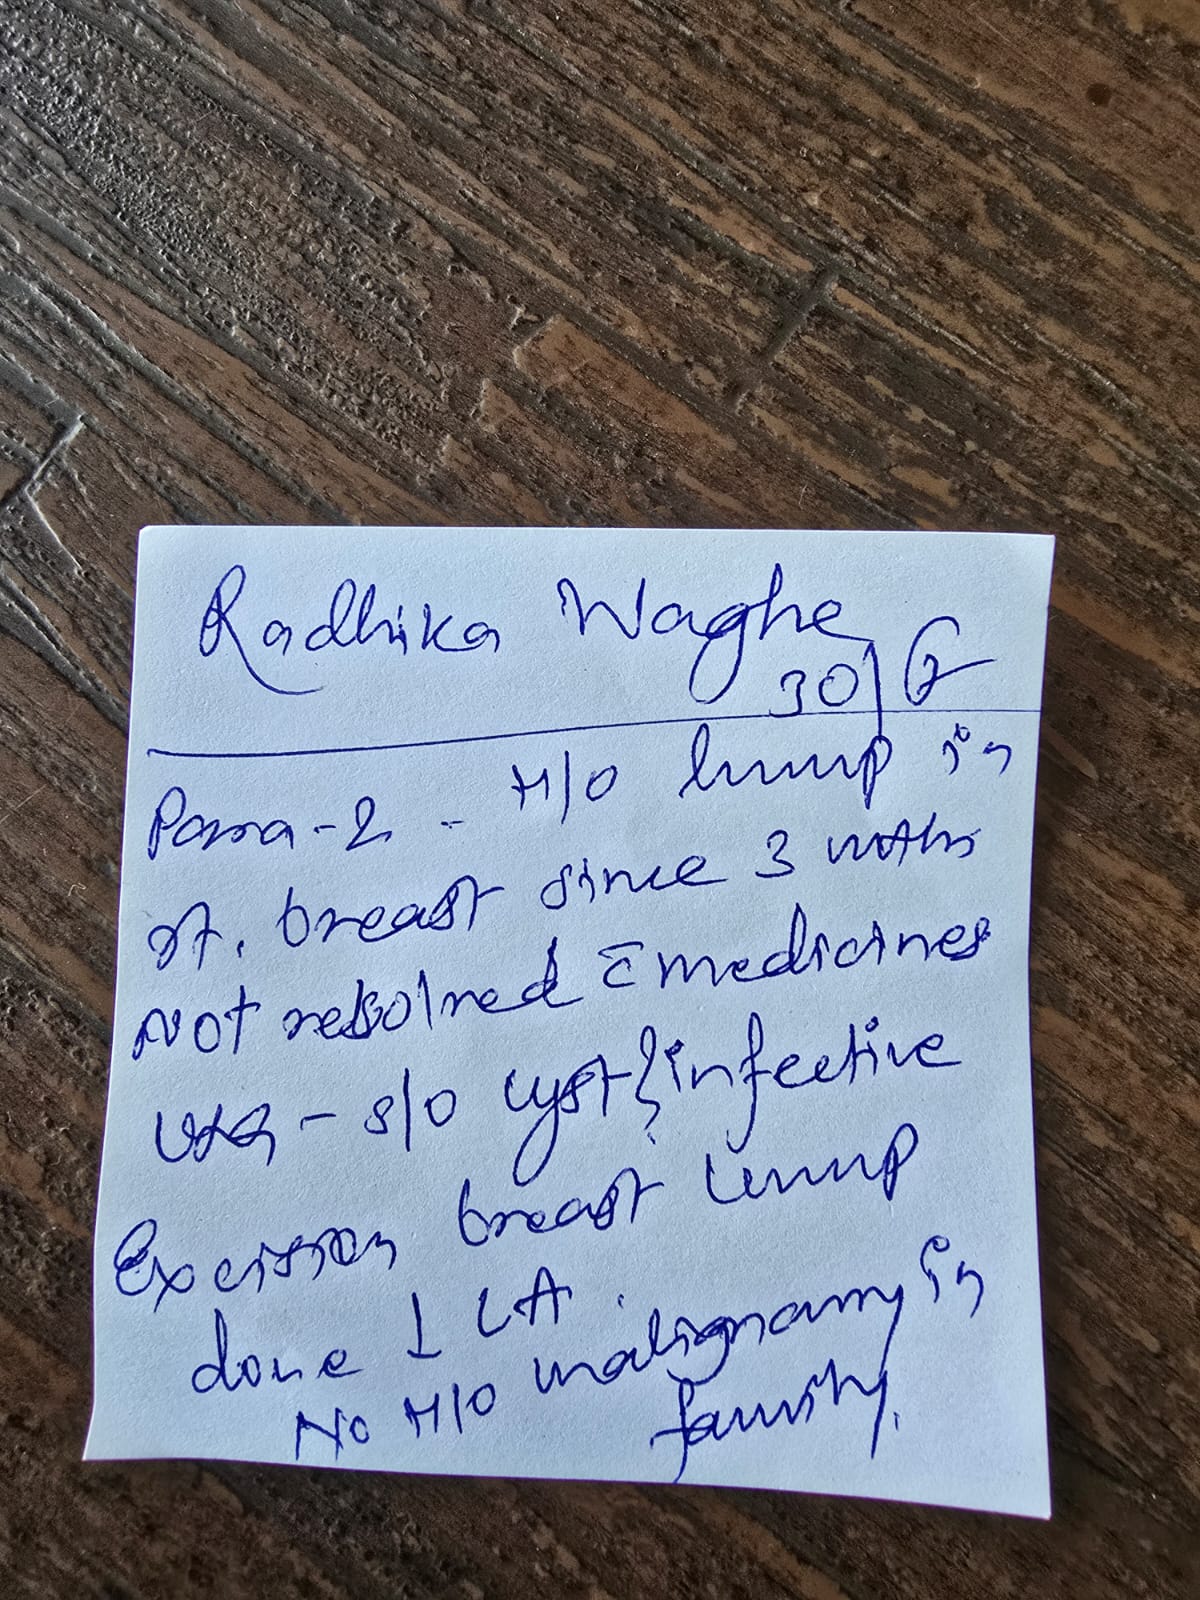 Radhika Waghe
30/F
Para-2 - H/O lump in
rt. breast since 3 mths
Not resolved c̄ medicines
USG - s/o cyst ? infective
Excision breast lump
done ↓ LA
No H/O malignancy in
family.